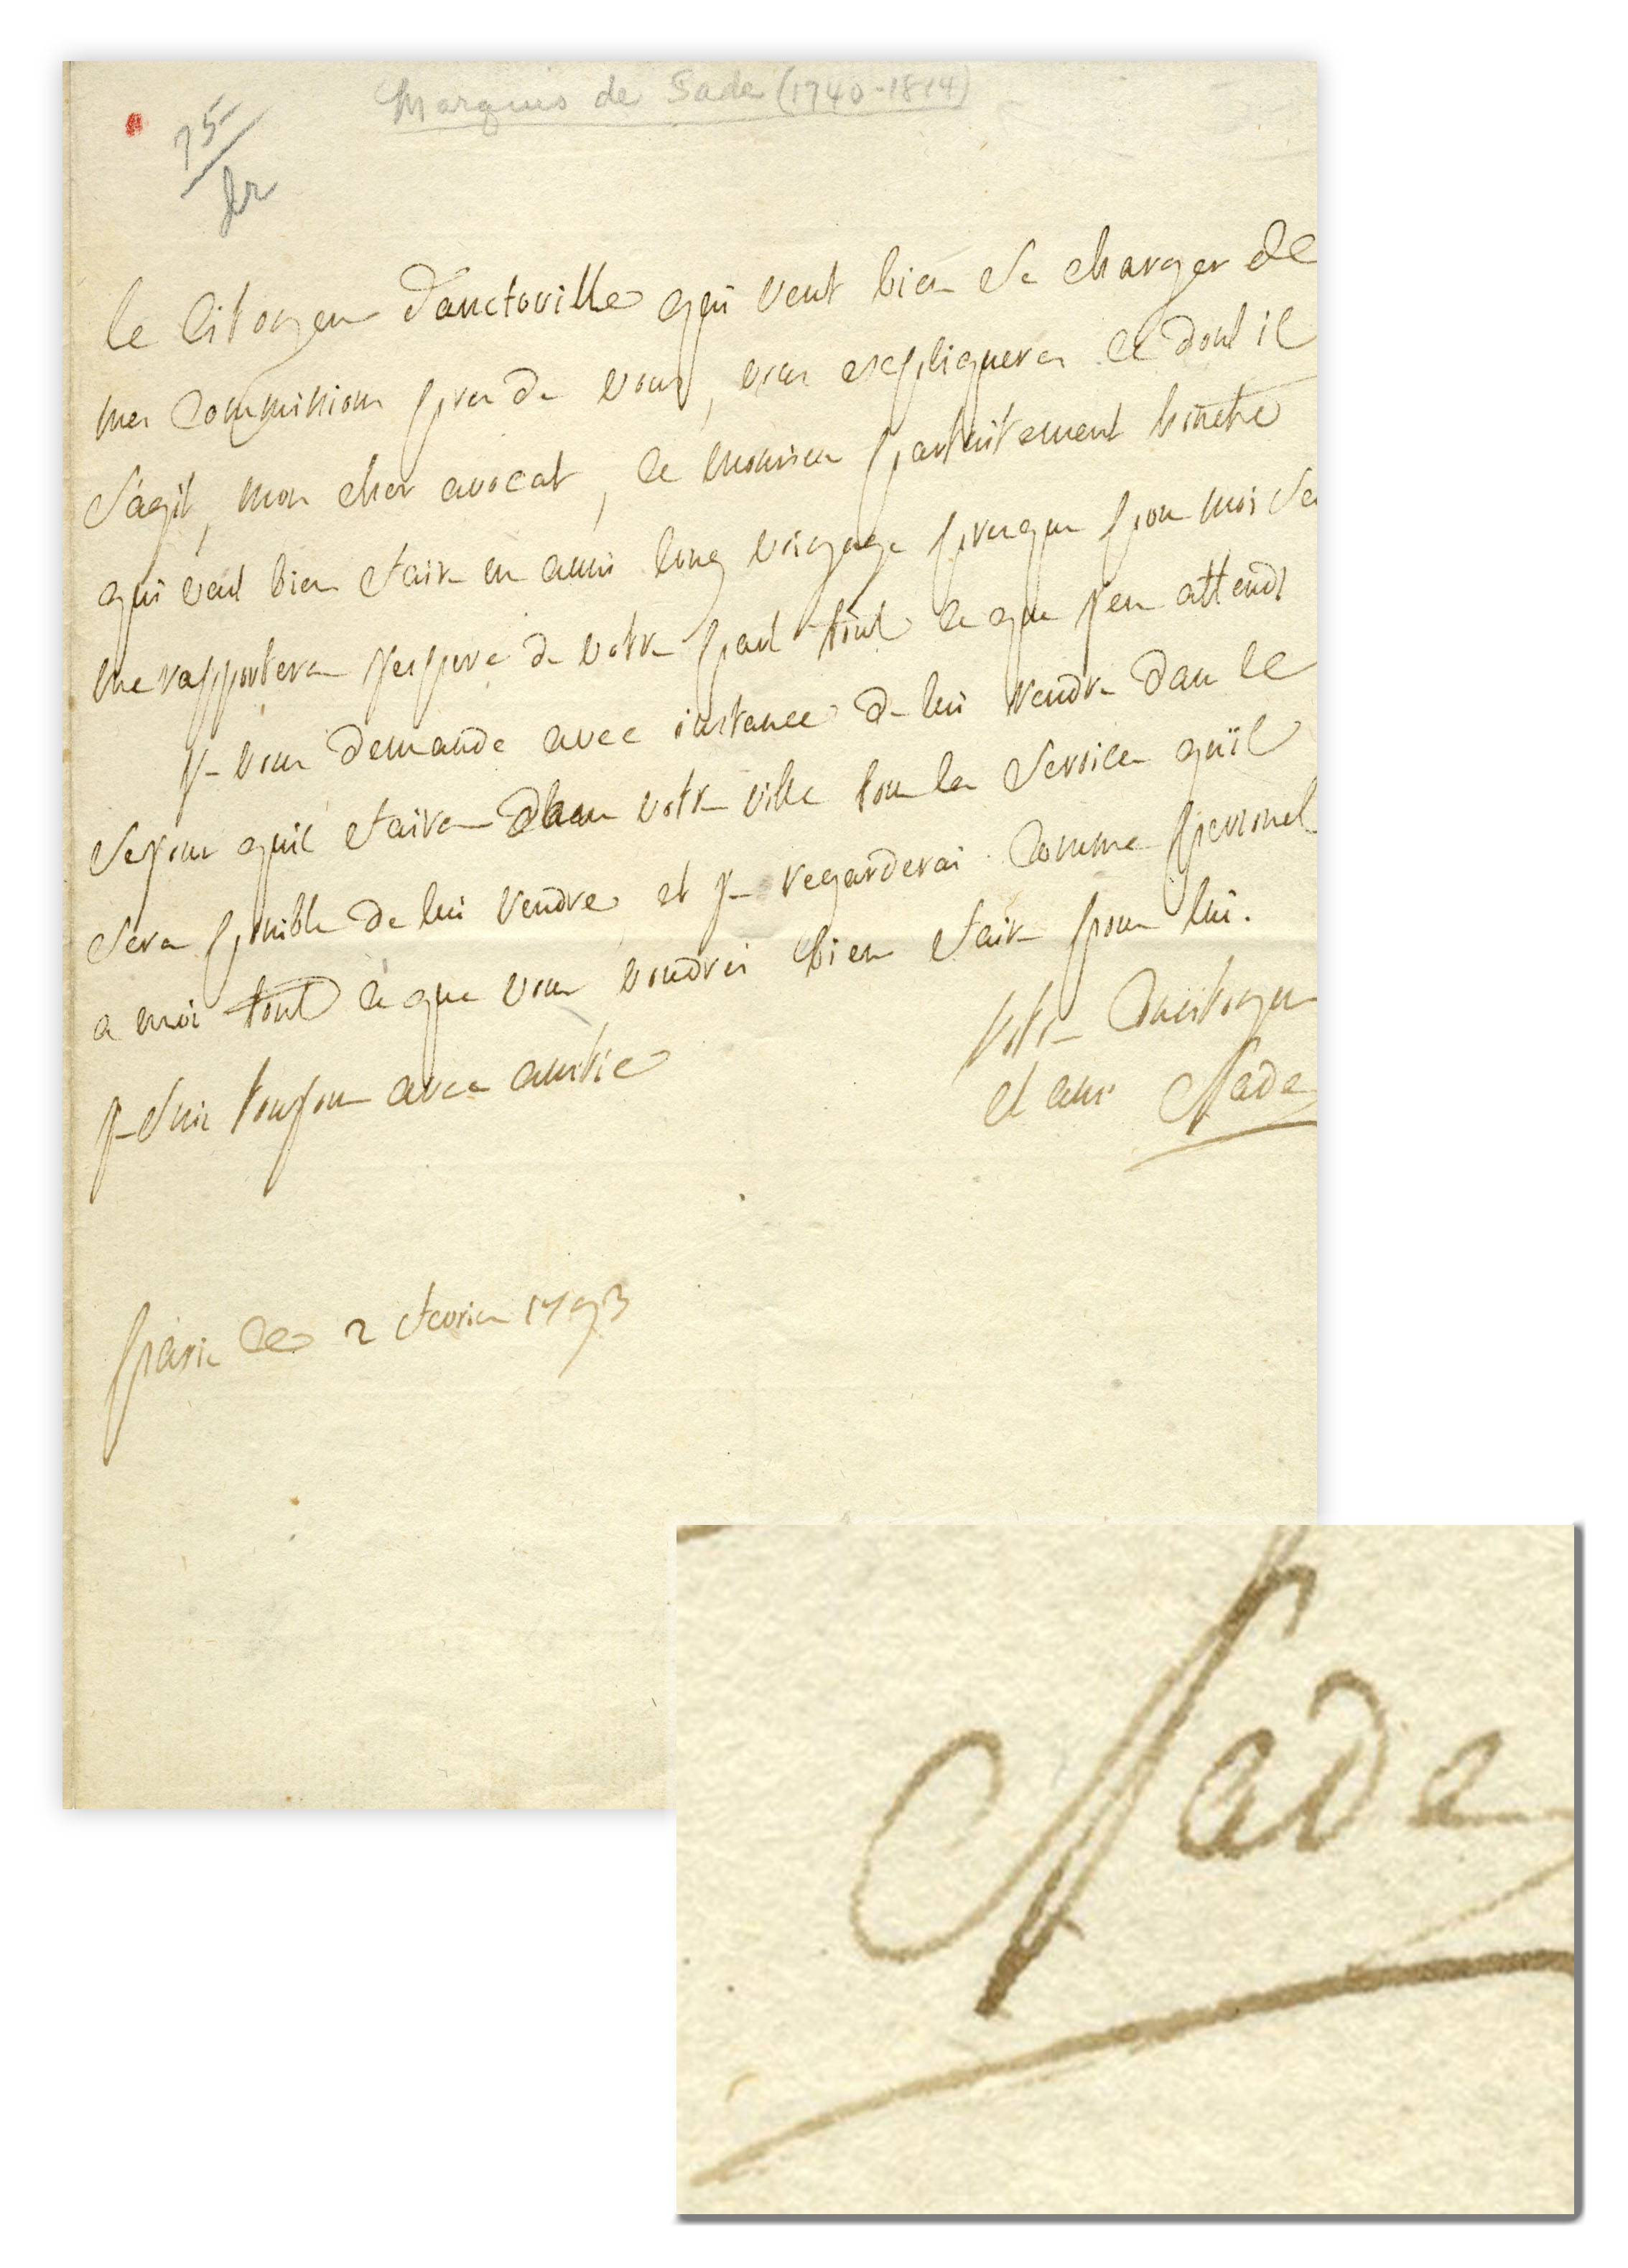 Marquis de Sade (1740-1814)
75
fr
le Citoyen Dauctoville qui veut bien se charger de
mes commissions pres de vous, vous expliquera ce dont il
s'agit, mon cher avocat, ce monsieur parfaitement honnete
qui veut bien faire un aussi long voyage presque pour moi seul
me rapportera j'espere de votre part tout ce que j'en attends
je vous demande avec instance de lui rendre dans le
sejour quil faira dans votre ville tous les services qu'il
sera possible de lui rendre, et je regarderai comme personel
a moi tout ce que vous voudrés bien faire pour lui.
je suis toujours avec amitié
votre Concitoyen
et ami Sade
paris ce 2 fevrier 1793
Sade